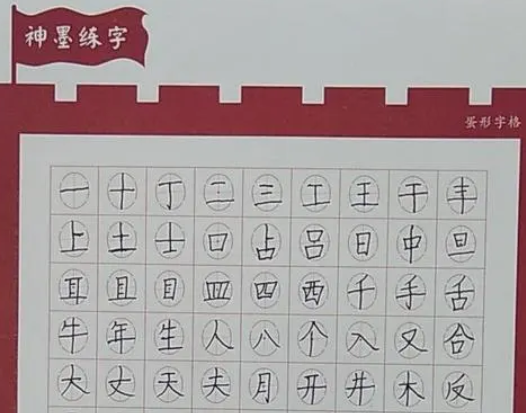 神墨练字
蛋形字格
一十丁二三工王干丰
上土士口占吕日中旦
耳且目皿四西千手舌
牛年生人八个入又合
大丈天夫月开井木反